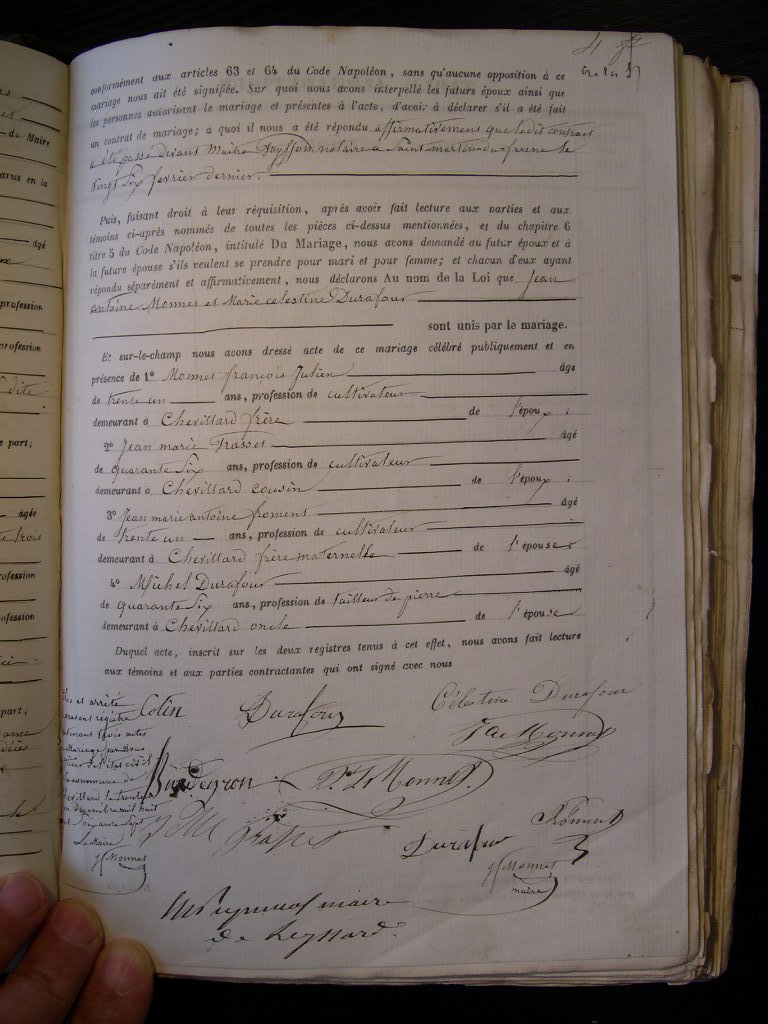 conformément aux articles 63 et 64 du Code Napoléon, sans qu'aucune opposition à ce
mariage nous ait été signifiée. Sur quoi nous avons interpellé les futurs époux ainsi que
les personnes autorisant le mariage et présentes à l'acte, d'avoir à déclarer s'il a été fait
un contrat de mariage; à quoi il nous a été répondu affirmativement que ledit contract
a été passé devant Maitre notaire a Saint martin du fresne le
vingt six fevrier dernier.
Puis, faisant droit à leur réquisition, après avoir fait lecture aux parties et aux
témoins ci-après nommés de toutes les pièces ci-dessus mentionnées, et du chapitre 6
titre 5 du Code Napoléon, intitulé Du Mariage, nous avons demandé au futur époux et à
la future épouse s'ils veulent se prendre pour mari et pour femme; et chacun d'eux ayant
répondu séparément et affirmativement, nous déclarons Au nom de la Loi que Jean
antoine Monnet et Marie celestine Durafour
sont unis par le mariage.
Et sur-le-champ nous avons dressé acte de ce mariage célébré publiquement et en
présence de 1° Monnet françois Julien âgé
de trente un ans, profession de cultivateur
demeurant à Chevillard frère de l'époux
2° Jean marie Frasset âgé
de quarante six ans, profession de cultivateur
demeurant à Chevillard cousin de l'époux
3° Jean marie antoine froment âgé
de trente un ans, profession de cultivateur
demeurant à Chevillard frère maternelle de l'épouse
4° Michel Durafour âgé
de quarante six ans, profession de tailleur de pierre
demeurant à Chevillard oncle de l'épouse
Duquel acte, inscrit sur les deux registres tenus à cet effet, nous avons fait lecture
aux témoins et aux parties contractantes qui ont signé avec nous
Cotin Durafour Célestine Durafour
J A Monnet
Monnet
Frasset Durafour froment
Monnet
maire
maire
de Leyssard
et arrété
present régistre
trois actes
Mariage par nous
de l'état civil
commune de
Chevillard le trente
un decembre mil huit
cent soixante sept
Le Maire
Monnet
de Maire
âgé
profession
profession
part;
âgée
profession
profession
part;